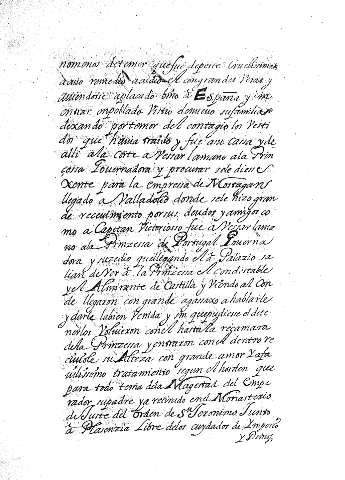 no menos de temor que fue de peste Cruelissima
a cuio remedio acudio el con grandes Veras y
auiendose aplacado vino a España y sin
entrar en poblado Vistio de nueuo su familia
dexando por temor del contagio los Vesti
dos que hauia traido y fue a su casa y de
alli a la corte a Vessar la mano a la Prin
cessa Gouernadora y procurar se le diesse
gente para la empresa de Mostagan
llegado a Valladolid donde se le hizo gran
de receuimiento por sus deudos y amigos co
mo a Capitan Victorioso fue a Vessar la ma
no a la Princesa de Portugal Gouerna
dora y sucedio que llegando el a Palazio sa
lian de Ver a la Princesa el Condestable
y el Almirante de Castilla y Viendo al Con
de llegaron con grande agasaxo a hablarle
y darle la bien Venida y sin que pudiese el dete
nerlos Voluieron con el hasta la recamara
de la Princesa y entraron con el dentro re
ciuiole su Alteza con grande amor y afa
uilissimo tratamiento segun el horden que
para todo tenia de la Magestad del Empe
rador su padre ya retirado en el Monasterio
de Juste del Orden de Sn. Jeronimo Junto
a Plasenzia Libre de los cuydados de Imperio
y Reinos